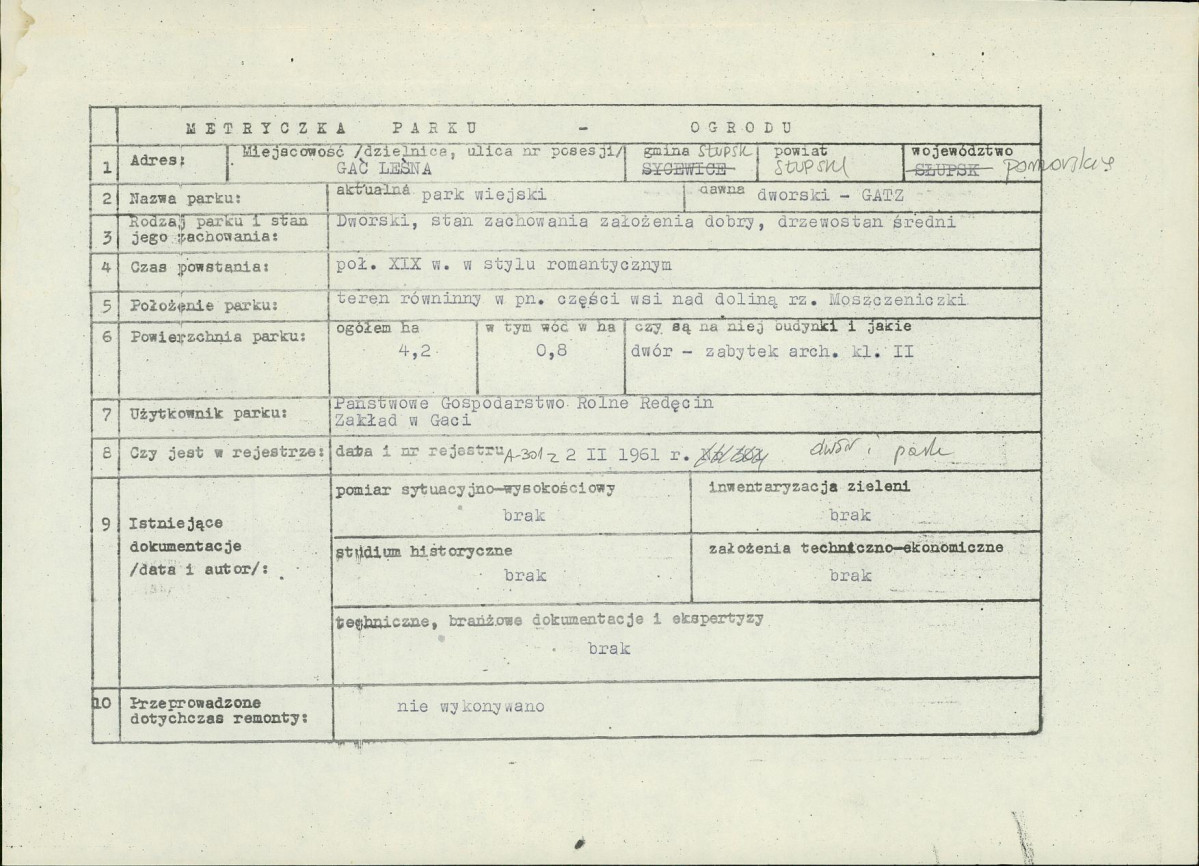 METRYCZKA PARKU - OGRODU
1 Adres: Miejscowość /dzielnica, ulica nr posesji/ gmina Słupsk powiat województwo
GAĆ LEŚNA SYCEWICE słupski SŁUPSK pomorskie
2 Nazwa parku: aktualna park wiejski dawna dworski - GATZ
3 Rodzaj parku i stan jego zachowania: Dworski, stan zachowania założenia dobry, drzewostan średni
4 Czas powstania: poł. XIX w. w stylu romantycznym
5 Położenie parku: teren równinny w pn. części wsi nad doliną rz. Moszczeniczki
6 Powierzchnia parku: ogółem ha w tym wód w ha czy są na niej budynki i jakie
4,2 0,8 dwór - zabytek arch. kl. II
7 Użytkownik parku: Państwowe Gospodarstwo Rolne Redęcin
Zakład w Gaci
8 Czy jest w rejestrze: data i nr rejestru A-301 z 2 II 1961 r. dwór i park
9 Istniejące dokumentacje /data i autor/:
pomiar sytuacyjno-wysokościowy inwentaryzacja zieleni
brak brak
studium historyczne założenia techniczno-ekonomiczne
brak brak
techniczne, branżowe dokumentacje i ekspertyzy
brak
10 Przeprowadzone dotychczas remonty: nie wykonywano